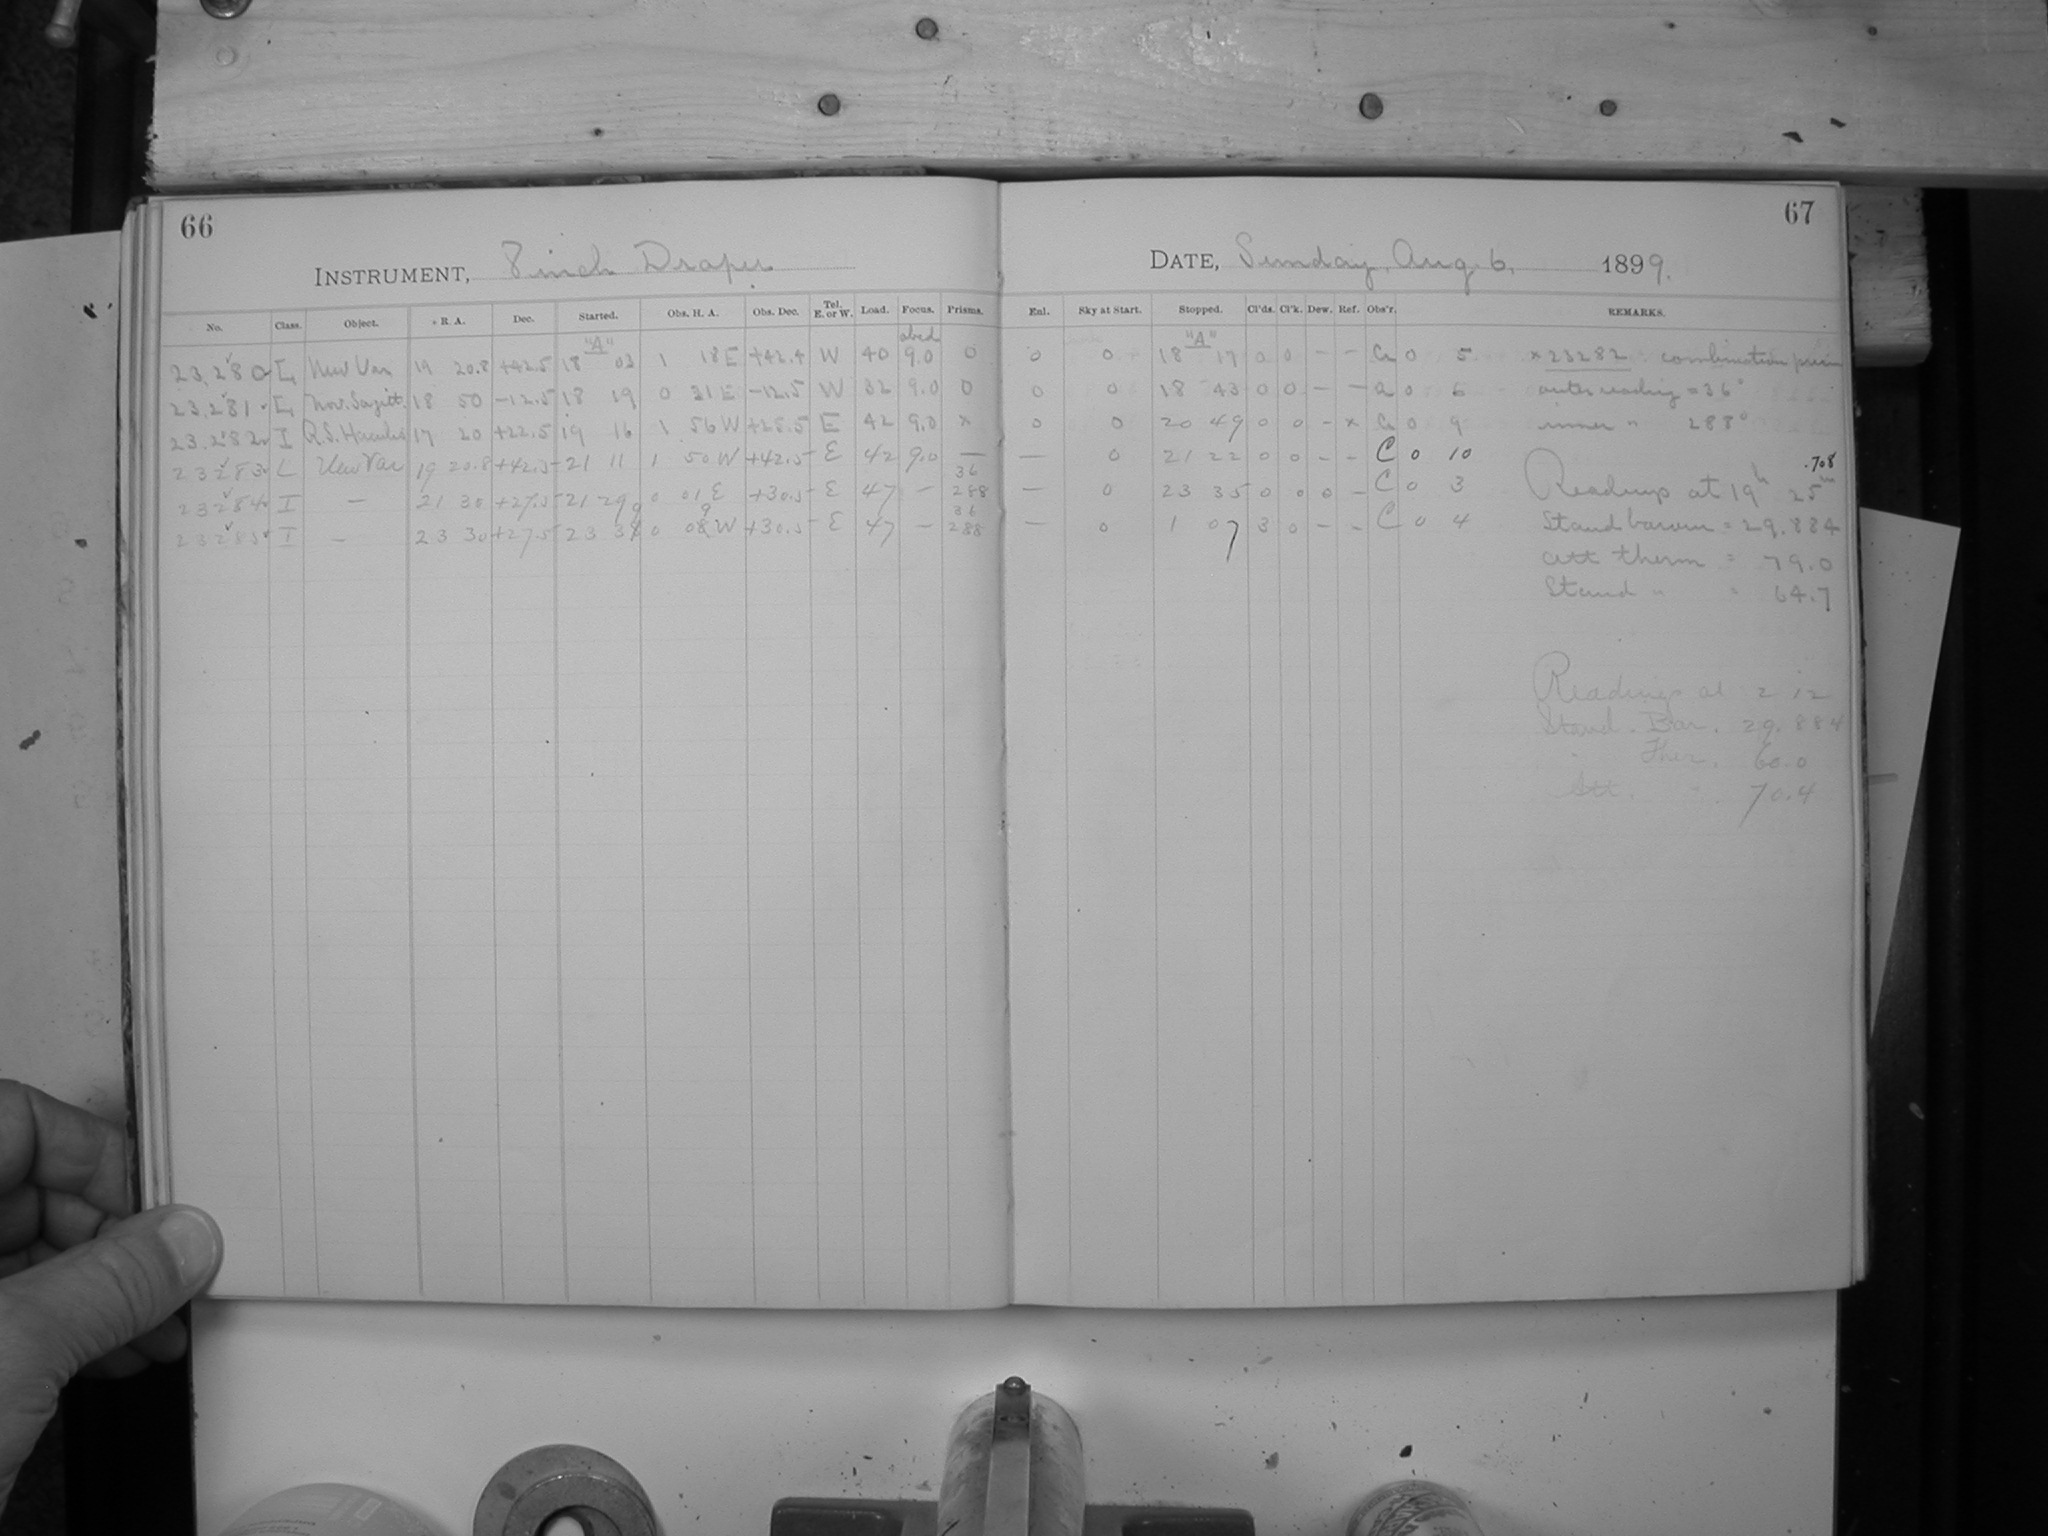 66
67
INSTRUMENT, 8 inch Draper
DATE, Sunday, Aug. 6, 1899.
No. Class. Object. R. A. Dec. Started. Obs. H. A. Obs. Dec. Tel. E. or W. Load. Focus. Prisms. Enl. Sky at Start. Stopped. Cl'ds. Cl'k. Dew. Ref. Obs'r. REMARKS.
"A" "A"
23,280 L New Var 19 20.8 +42.5 18 03 1 18 E +42.4 W 40 9.0 0 0 0 18 17 0 0 – – 0 5 × 23282 combination prism
23,281 L Nov. Sagitt. 18 50 –12.5 18 19 0 31 E –12.5 W 32 9.0 0 0 0 18 43 0 0 – – 0 6 outer reading = 36°
23,282 I R.S. Herculis 17 20 +22.5 19 16 1 56 W +25.5 E 42 9.0 × 0 0 20 49 0 0 – × 0 9 inner " 288°
23283 L New Var 19 20.8 +42.5 21 11 1 50 W +42.5 E 42 9.0 — — 0 21 22 0 0 – – C 0 10
.708
23284 I — 21 30 +27.5 21 29 0 01 E +30.5 E 47 – 36 288 — 0 23 35 0 0 0 – C 0 3 Readings at 19h 25m
23285 I — 23 30 +27.5 23 38 0 08 W +30.5 E 47 – 36 288 — 0 1 07 3 0 – – C 0 4 Stand barom = 29.884
att therm = 79.0
Stand " = 64.7
Readings at 2 12
Stand. Bar. 29.884
" Ther. 60.0
Att. " 70.4